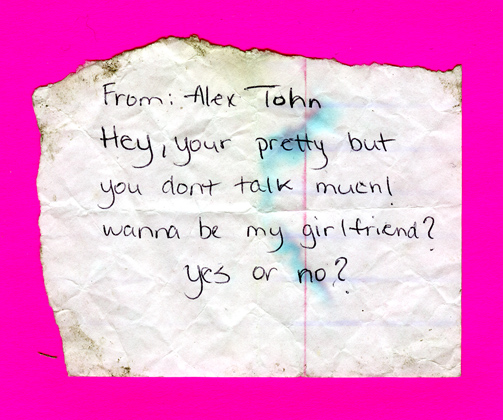 From: Alex Tohn
Hey, your pretty but
you dont talk much!
wanna be my girlfriend?
yes or no?